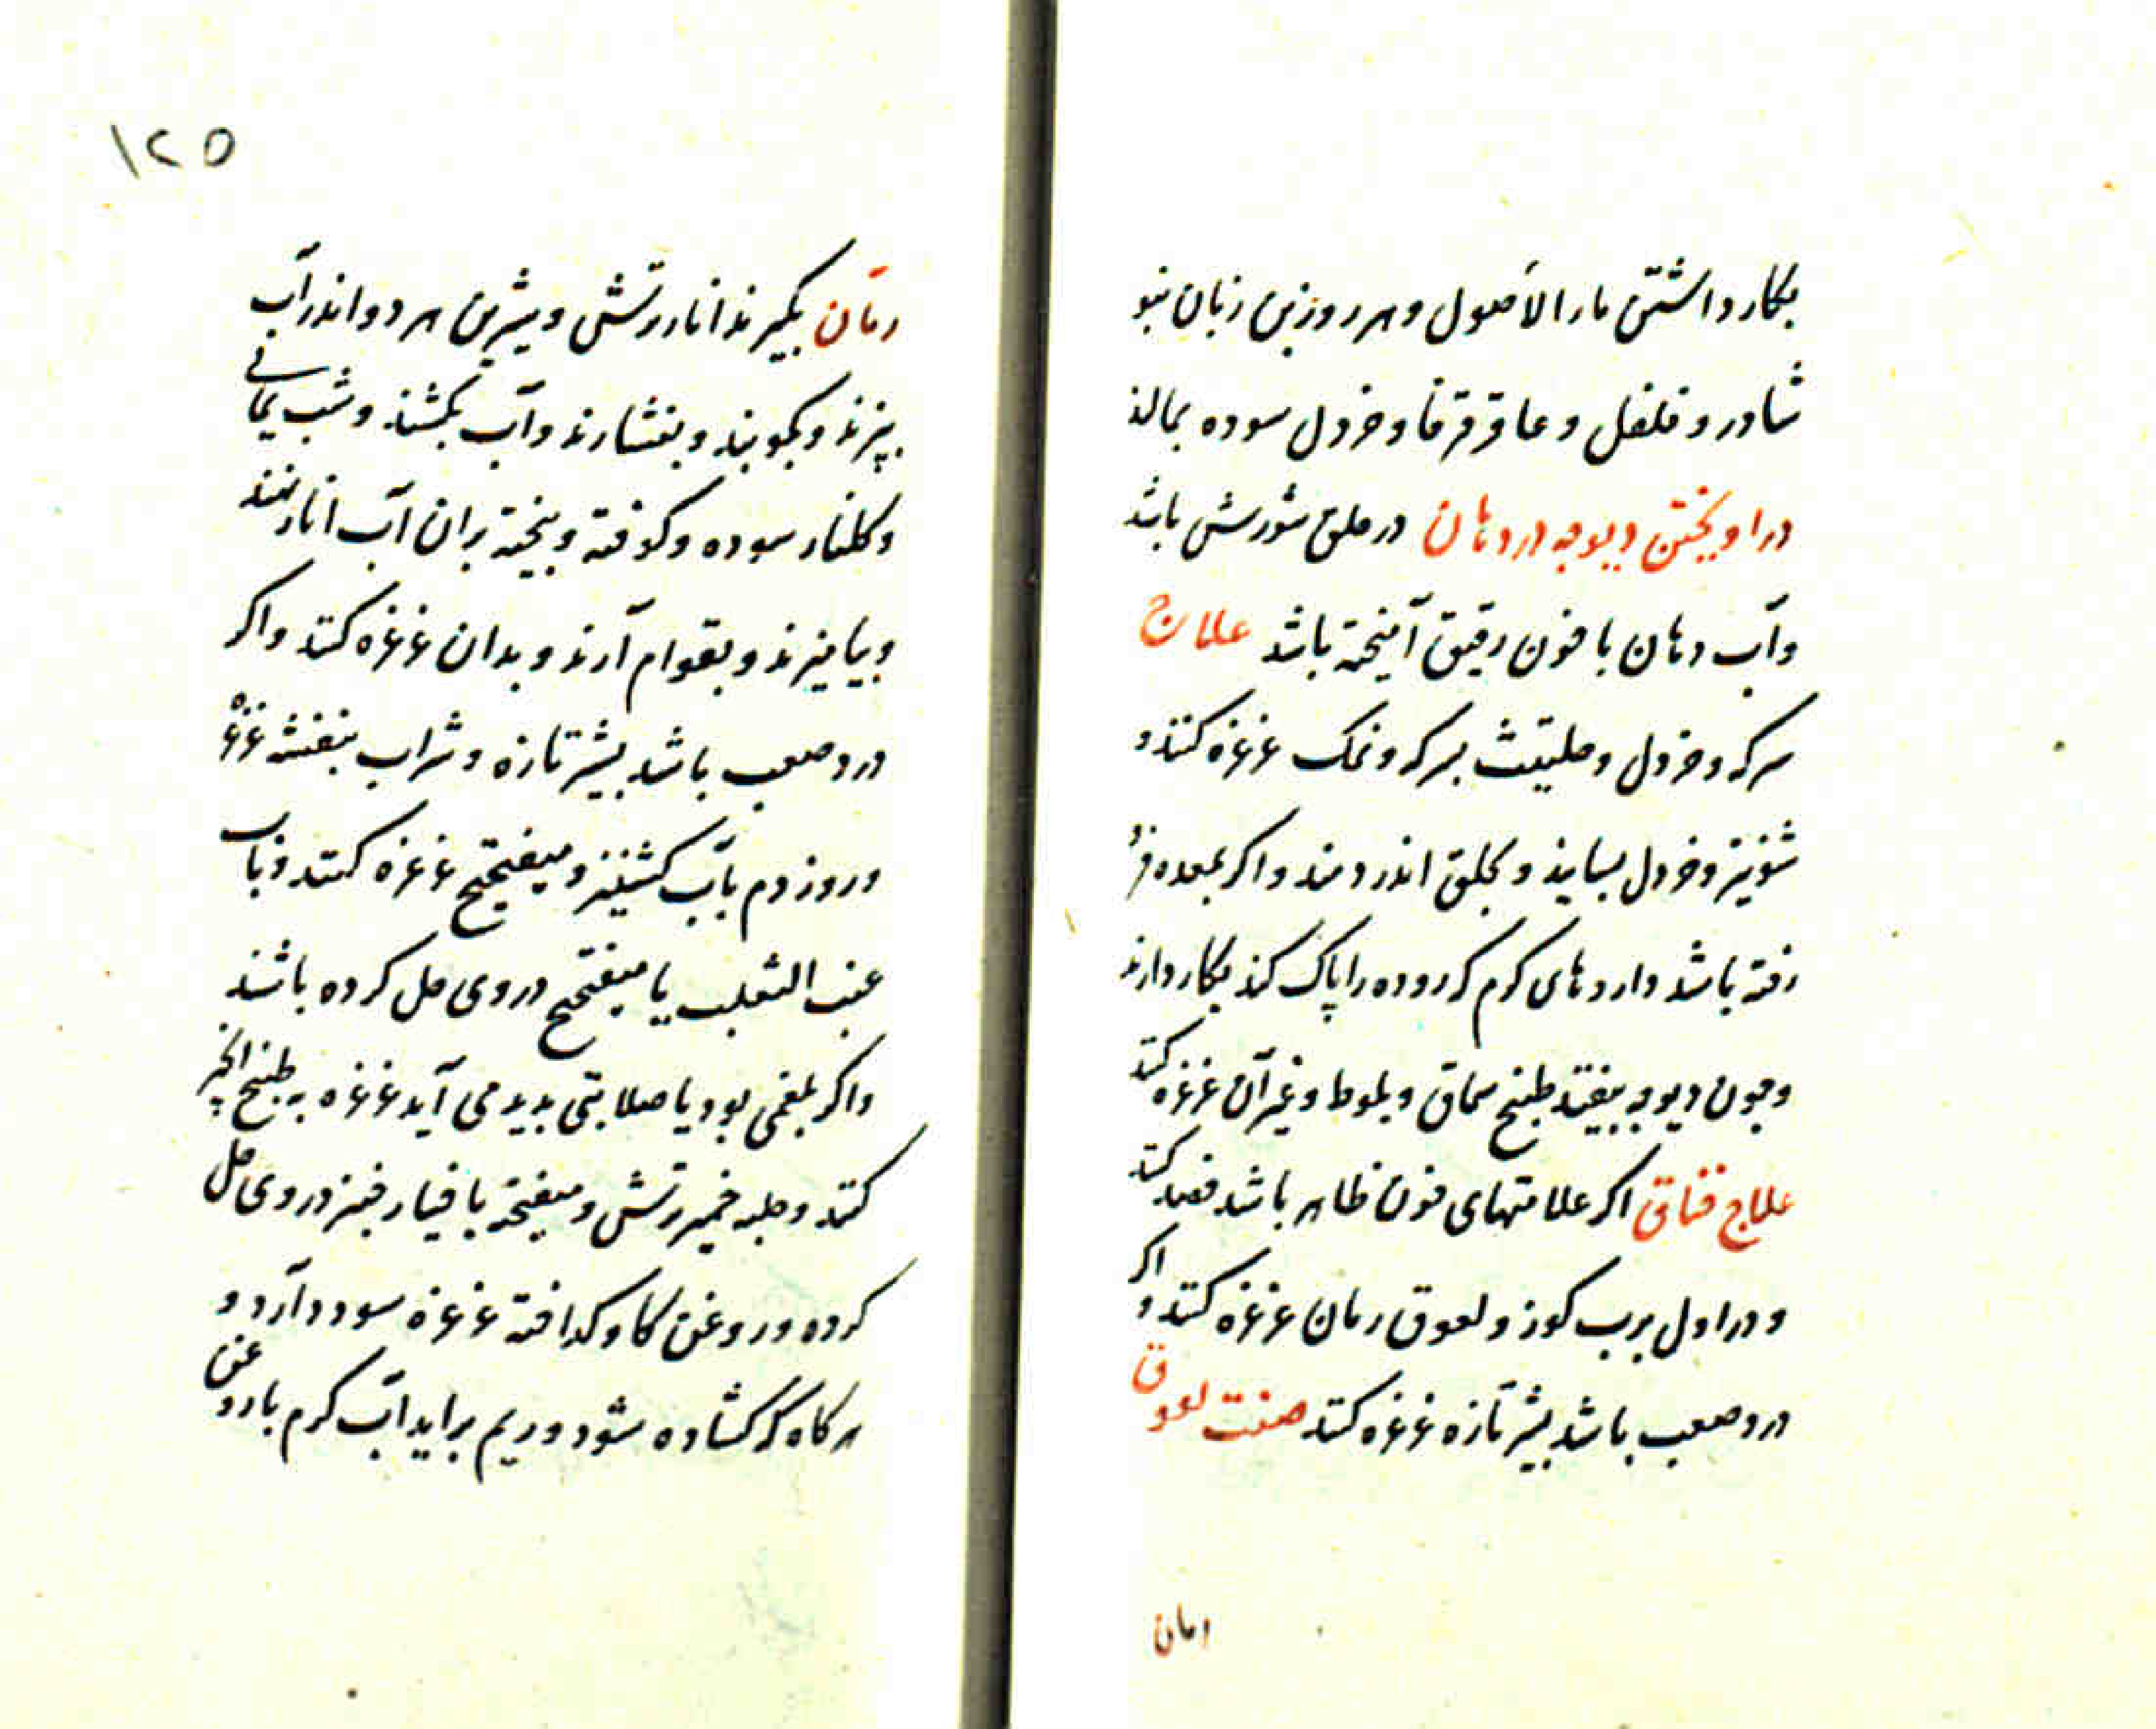 بکار داشتن ماء الأصول و هر روز بن زبان بنو
شادر و فلفل و عاقرقرفا و خردل سوده بمالند
در اویختن دیوجه در دهان در حلق شورش باشد
وآب دهان با خون رقیق آمیخته باشد علاج
سرکه و خردل و حلتیت بسرکه و نمک غرغره کنند و
شونیز و خردل بسایند و بحلق اندر دمند و اکر بمعده فرو
رفته باشد داروهای کرم که روده را پاک کند بکار دارند
و جون دیوجه بیفتد طبیخ سماق و بلوط و غیر آن غرغره کنند
علاج خناق اکر علامتهای خون ظاهر باشد فصد کنند
و در اول برب کوز و لعوق رمان غرغره کنند و اکر
درد صعب باشد بشیر تازه غرغره کنند صفت لعوق
رمان
۱۲۵
رمّان بکیرند انار ترش و شیرین هر دو اندر آب
بپزند و بکوبند و بفشارند و آب بکشند و شب یمانی
و کلنار سوده و کوفته و بیخته بران آب انار نهند
و بیامیزند و بقوام آرند و بدان غرغره کنند و اکر
درد صعب باشد بشیر تازه و شراب بنفشه غرغره
و روز دوم بآب کشنیز و میفختج غرغره کنند و بآب
عنب الثعلب یا میفختج در وی حل کرده باشند
و اکر بلغمی بود یا صلابتی بدید می آید غرغره به طبیخ انجیر
کنند و حلبه خمیر ترش و میفختج با خیار جنبر در وی حل
کرده و روغن کاو کداخته غرغره سود دارد و
هر کاه که کشاده شود و ریم براید آب کرم با روغن